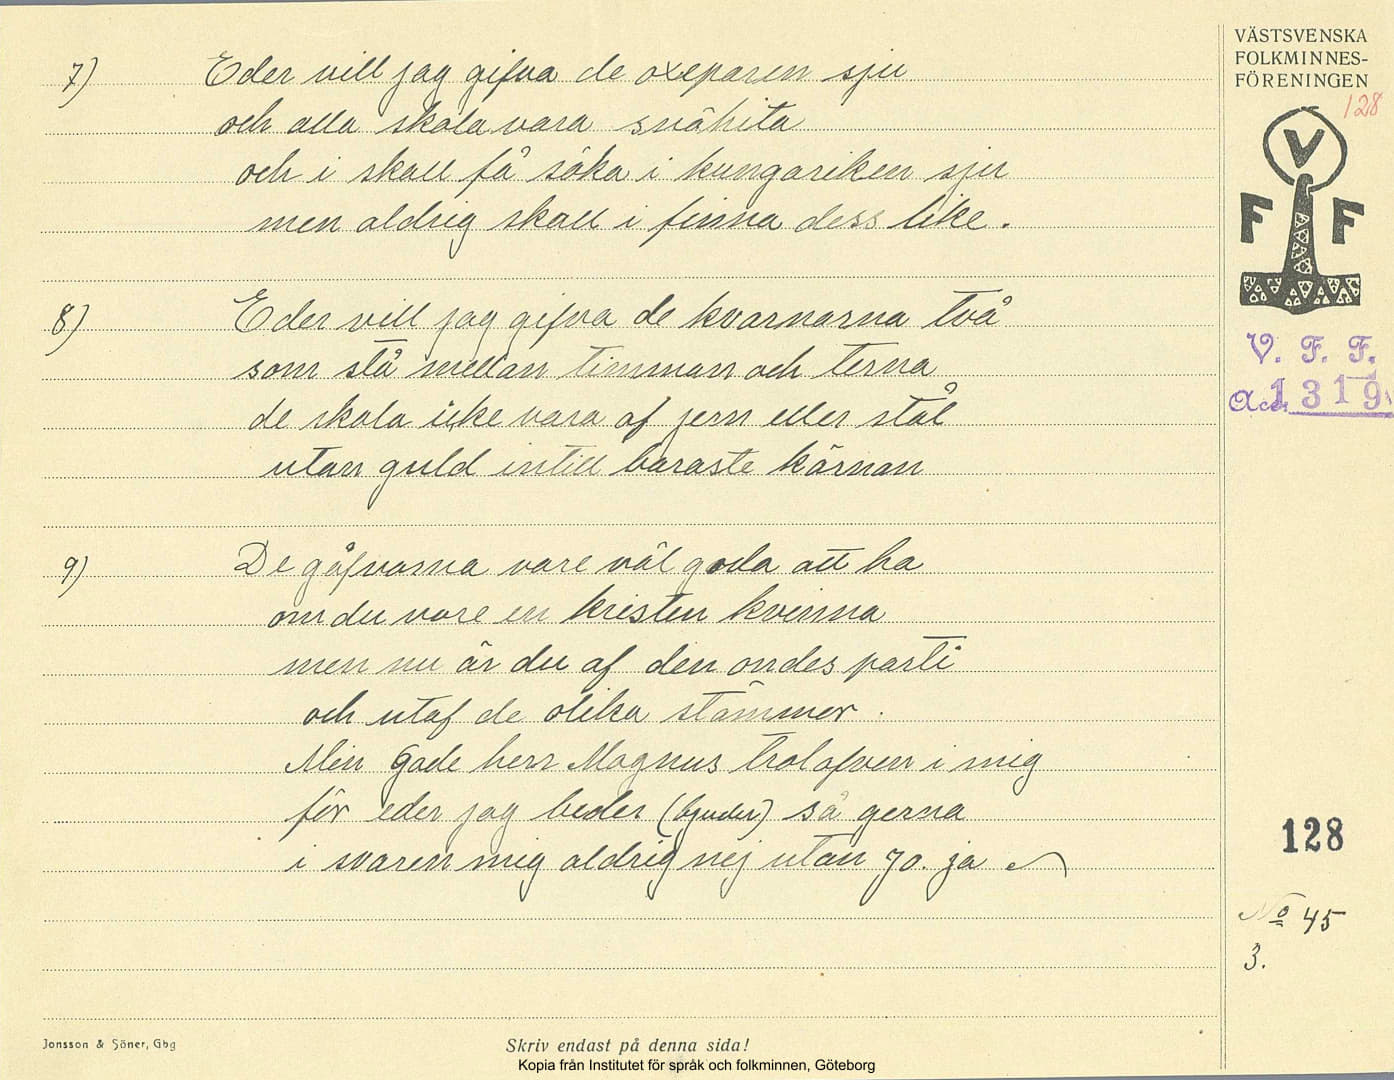 VÄSTSVENSKA
FOLKMINNES-
FÖRENINGEN
128
V
F F
V. F. F.
Acc. 1319
7) Eder vill jag gifva de oxeparen sju
och alla skola vara snöhita
och i skall få söka i kungariken sju
men aldrig skall i finna dess like.
8) Eder vill jag gifva de kvarnarna två
som stå mellan timman och terna
de skola icke vara af jern eller stål
utan guld intill baraste kärnan
9) De gåfvorna vore väl goda att ha
om du vore en kristen kvinna
men nu är du af den ondes parti
och utaf de olika stämmor.
Min Gode herr Magnus trolofven i mig
för eder jag beder (bjuder) så gerna
i svaren mig aldrig nej utan jo. ja
128
No 45
3.
Jonsson & Söner, Gbg
Skriv endast på denna sida!
Kopia från Institutet för språk och folkminnen, Göteborg